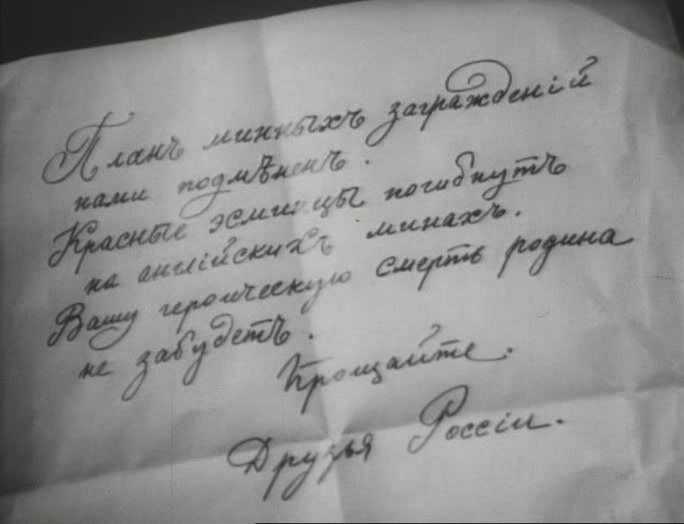 Планъ минныхъ загражденій
нами подмѣненъ.
Красные эсминцы погибнутъ
на англійскихъ минахъ.
Вашу героическую смерть родина
не забудетъ.
Прощайте.
Друзья Россіи.